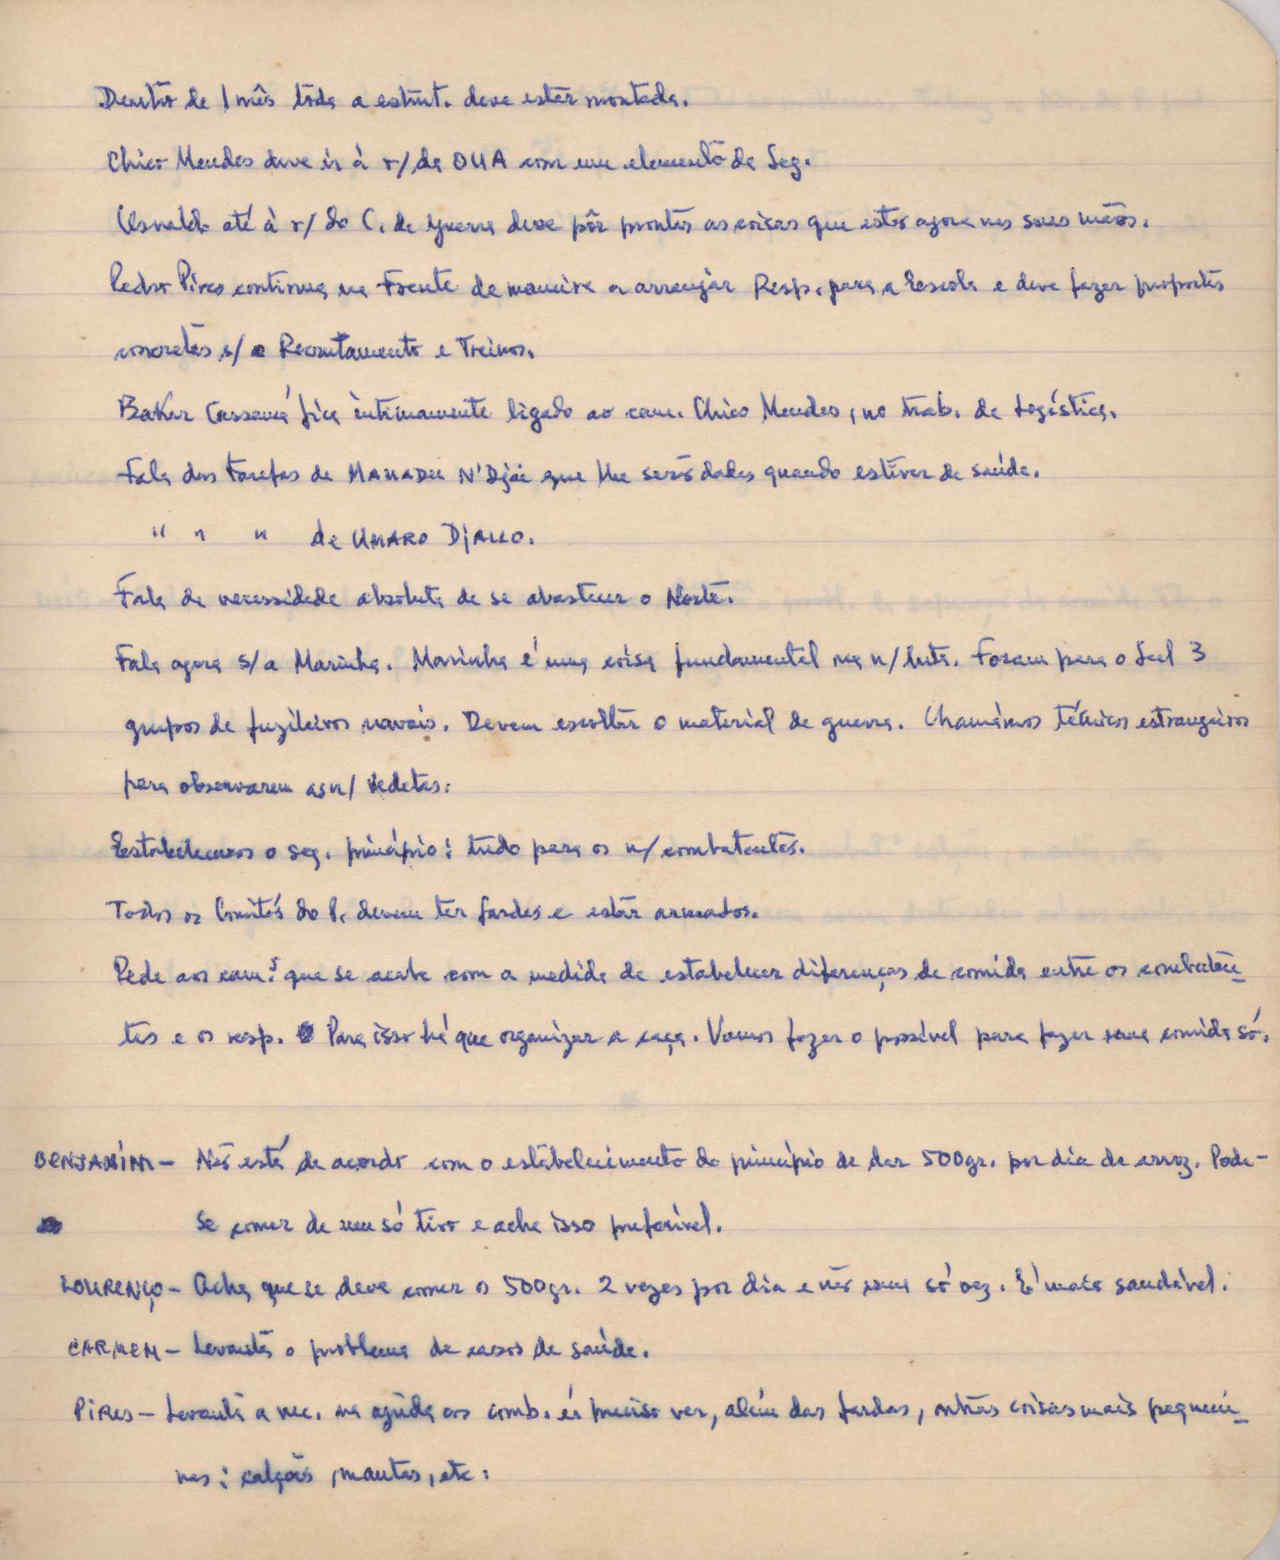 Dentro de 1 mês tôda a estrut. deve estar montada.
Chico Mendes deve ir à r/ da OUA com um elemento da Seg.
Osvaldo até à r/ do C. de Guerra deve pôr prontas as coisas que estão agora nas suas mãos.
Pedro Pires continua na Frente de maneira a arranjar Resp. para a Escola e deve fazer propostas
concretas s/ o Recrutamento e Treinos.
Baker Cassamá fica intimamente ligado ao cam. Chico Mendes, no trab. de Logística.
Fala das tarefas de MAMADU N'Djai que lhe serão dadas quando estiver de saúde.
" " " de UMARO DJALLO.
Fala da necessidade absoluta de se abastecer o Norte.
Fala agora s/ a Marinha. Marinha é uma coisa fundamental na n/ luta. Foram para o Sul 3
grupos de fuzileiros navais. Devem escoltar o material de guerra. Chamámos técnicos estrangeiros
para observarem as n/ Vedetas.
Estabelecemos o seg. princípio: tudo para os n/ combatentes.
Todos os Comités do P. devem ter fardas e estar armados.
Pede aos cam.s que se acabe com a medida de estabelecer diferenças de comida entre os combaten-
tes e os resp. Para isso há que organizar a caça. Vamos fazer o possível para fazer uma comida só.
BENJAMIM - Não está de acordo com o estabelecimento do princípio de dar 500gr. por dia de arroz. Pode-
se comer de um só tiro e acha isso preferível.
LOURENÇO - Acha que se deve comer os 500gr. 2 vezes por dia e não uma só vez. É mais saudável.
CARMEM - Levanta o problema de casos de saúde.
PIRES - Levanta a nec. na ajuda aos comb. é preciso ver, além das fardas, outras coisas mais pequeni-
nas: calções, mantas, etc.